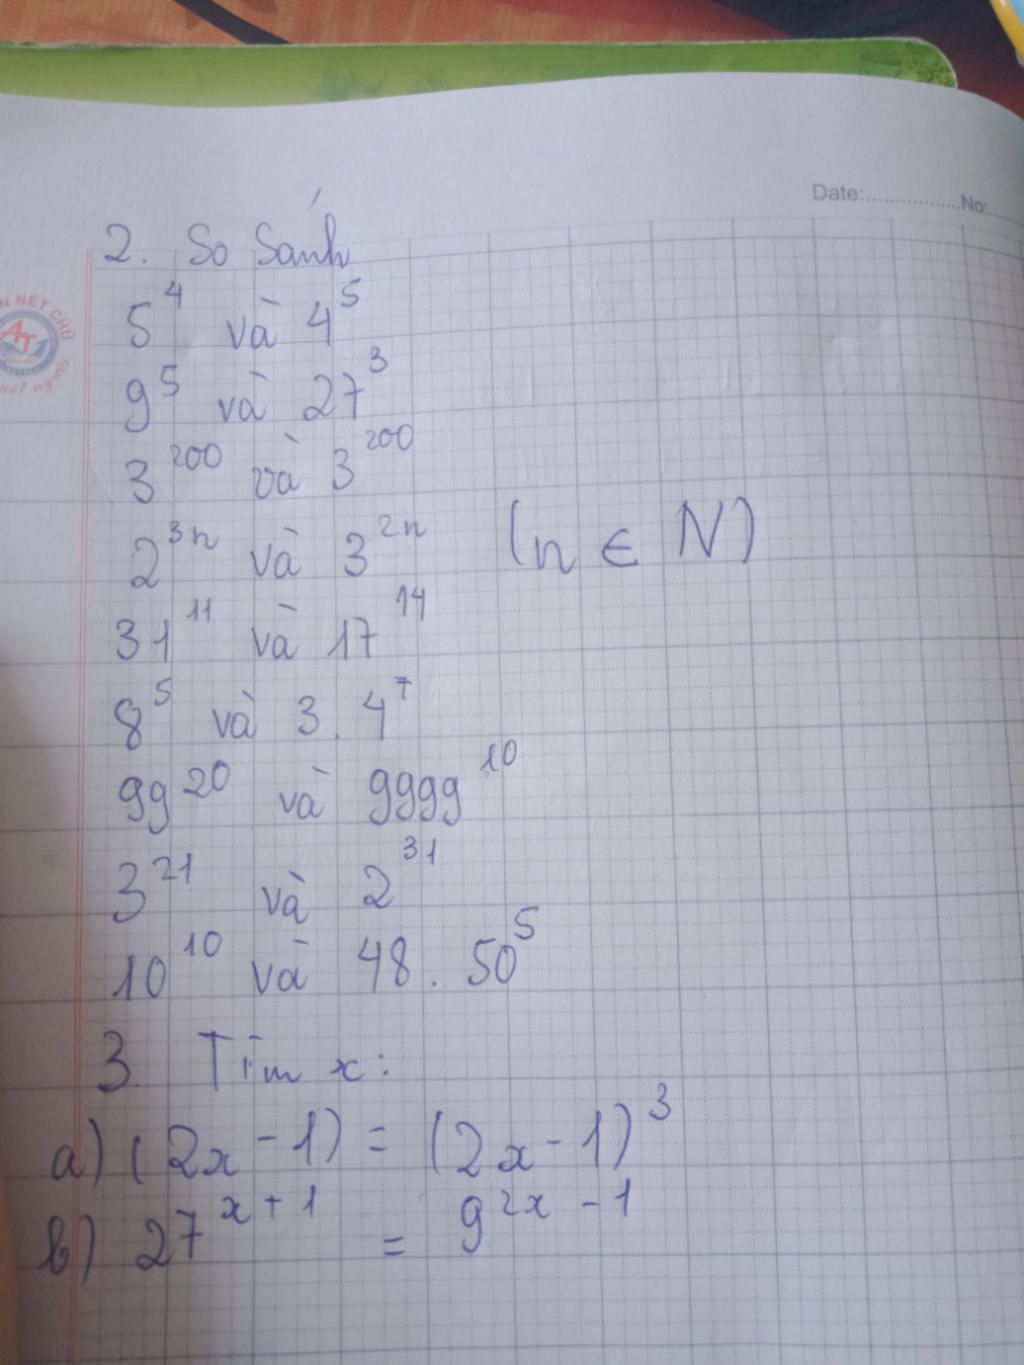 Date:..................No:......
2. So Sánh
N NÉT CHỮ
AT
nết người
5⁴ và 4⁵
9⁵ và 27³
3²⁰⁰ và 3²⁰⁰
2³ⁿ và 3²ⁿ (n ∈ N)
31¹¹ và 17¹⁴
8⁵ và 3.4⁷
99²⁰ và 9999¹⁰
3²¹ và 2³¹
10¹⁰ và 48.50⁵
3. Tìm x:
a) (2x - 1) = (2x - 1)³
b) 27ˣ⁺¹ = 9²ˣ⁻¹